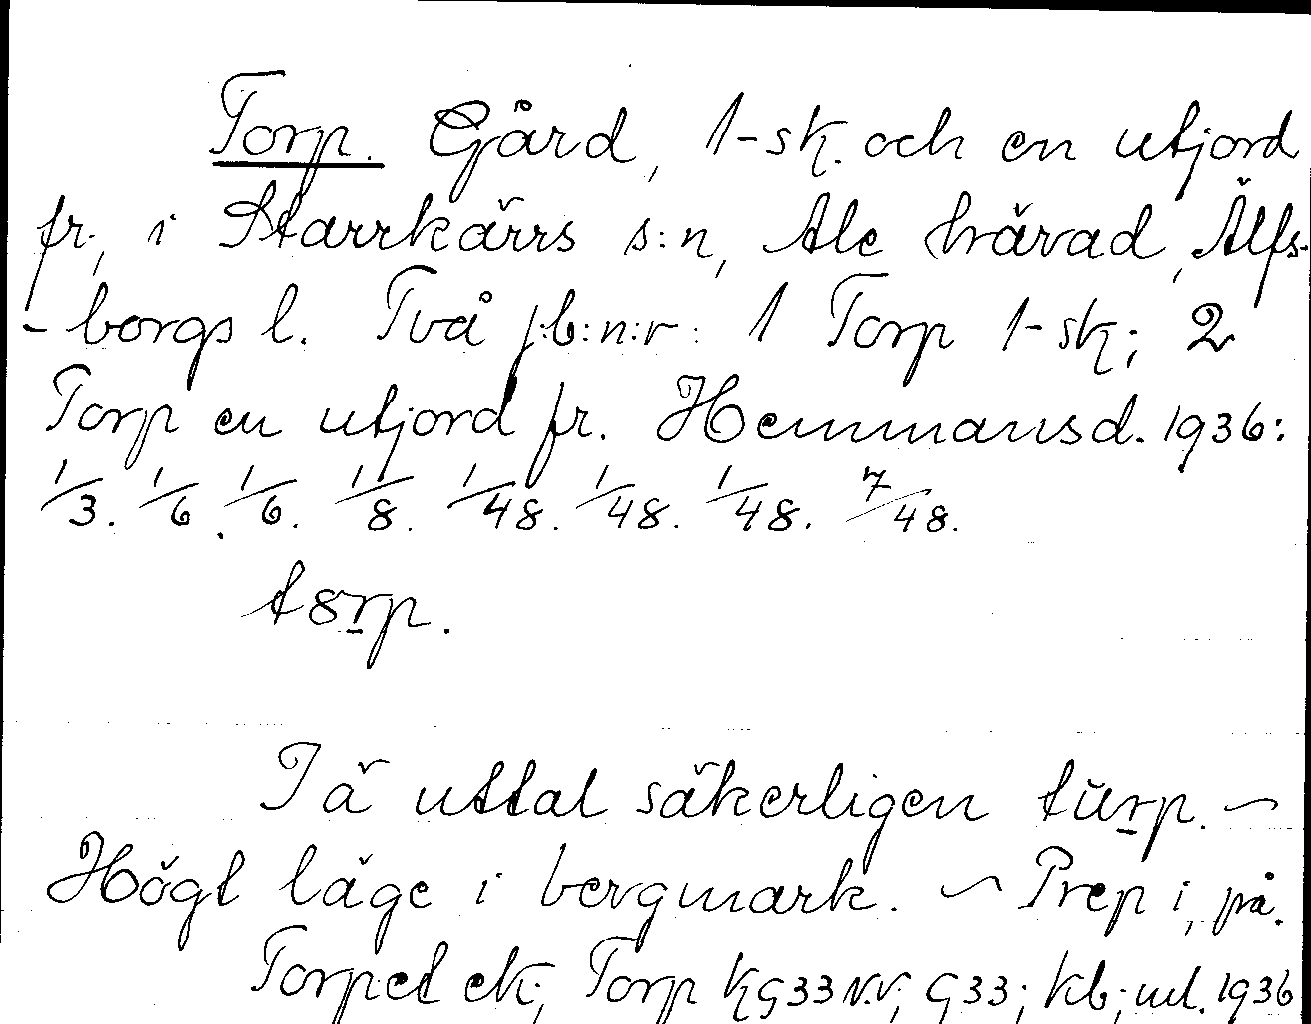 Torp. Gård, 1-sk. och en utjord
fr., i Starrkärrs s:n, Ale härad, Älfs-
-borgs l. Två j:b:n:r: 1 Torp 1-sk; 2
Torp en utjord fr. Hemmansd. 1936:
1/3. 1/6. 1/6. 1/8. 1/48. 1/48. 1/48. 7/48.
t8rp.
I ä uttal säkerligen tŭrp. —
Högt läge i bergmark. — Prep i, på.
Torpet ek; Torp KG33 N.V; G33; kb; ul. 1936